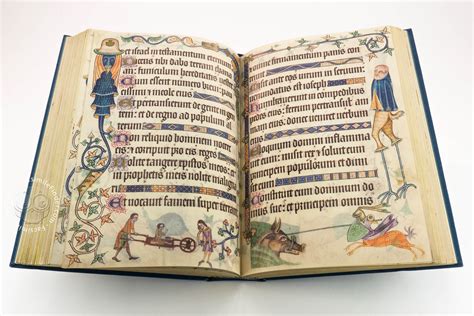 et israel in testamentum
Dicens tibi dabo terram
an: funiculum hereditatis
Cum essent numero breui
simi et incole eius
Et pertransierunt de gente in gen
tem: et de regno ad populum al
terum
Non reliquit hominem noce
re eis: et corripuit pro eis reges
Nolite tangere xpistos meos: et
in prophetis meis nolite
gnari
Et uocauit famem super terram
et omne firmamentum panis
Misit ante eos uirum: in seruum
uenundatus est ioseph
Humiliauerunt in compedibus
pedes eius: ferrum pertransiit
Eloquium domini inflamma
eum: misit rex et soluit eum
princeps populorum et dimisit
eum
Constituit eum dominum do
mus sue: et principem omnis